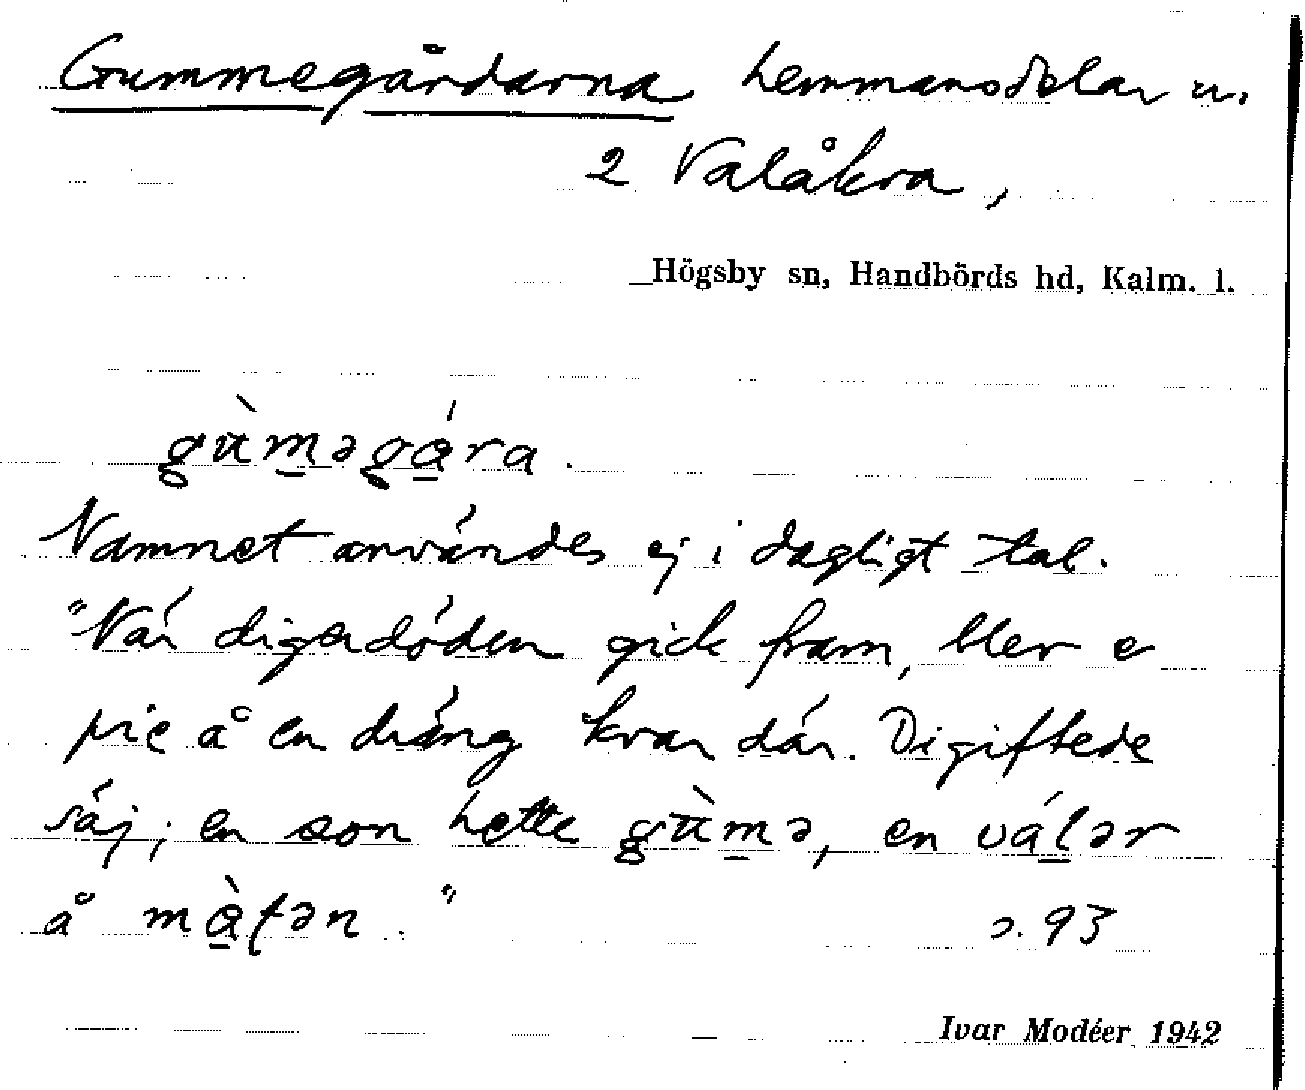 Gummegårdarna hemmansdelar u.
2 Valåkra,
Högsby sn, Handbörds hd, Kalm. l.
gùməgára.
Namnet användes ej i dagligt tal.
"När digerdöden gick fram, blev e
pie å en dräng kvar där. Di giftede
säj; en son hette gùmə, en válər
å màtən."
s. 93
Ivar Modéer 1942